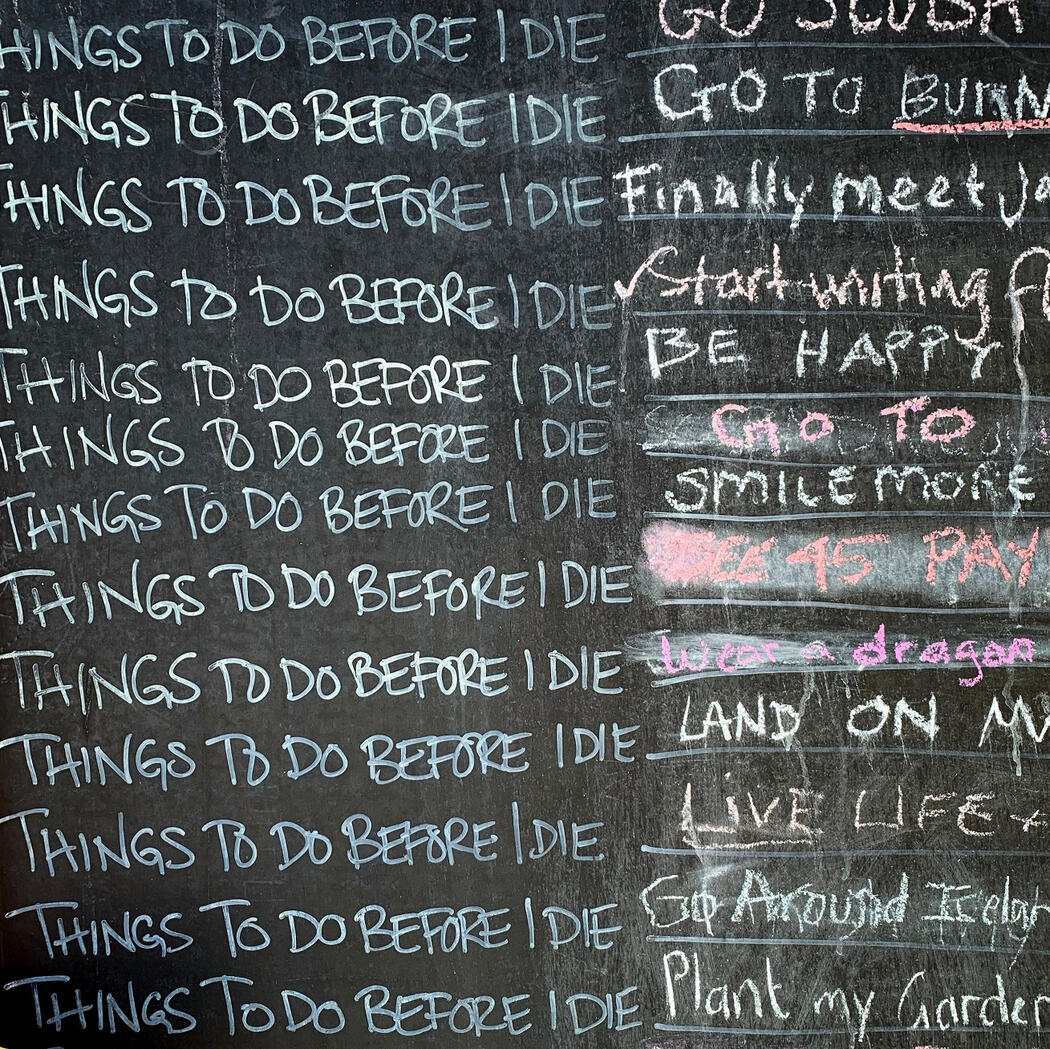 THINGS TO DO BEFORE I DIE GO SCUBA
THINGS TO DO BEFORE I DIE GO TO BURN
THINGS TO DO BEFORE I DIE Finally meet Ja
THINGS TO DO BEFORE I DIE Start writing
THINGS TO DO BEFORE I DIE BE HAPPY
THINGS TO DO BEFORE I DIE GO TO
THINGS TO DO BEFORE I DIE SMILE MORE
THINGS TO DO BEFORE I DIE SEE 45 PAY
THINGS TO DO BEFORE I DIE Wear a dragon
THINGS TO DO BEFORE I DIE LAND ON MY
THINGS TO DO BEFORE I DIE LIVE LIFE
THINGS TO DO BEFORE I DIE Go Around
THINGS TO DO BEFORE I DIE Plant my Garden